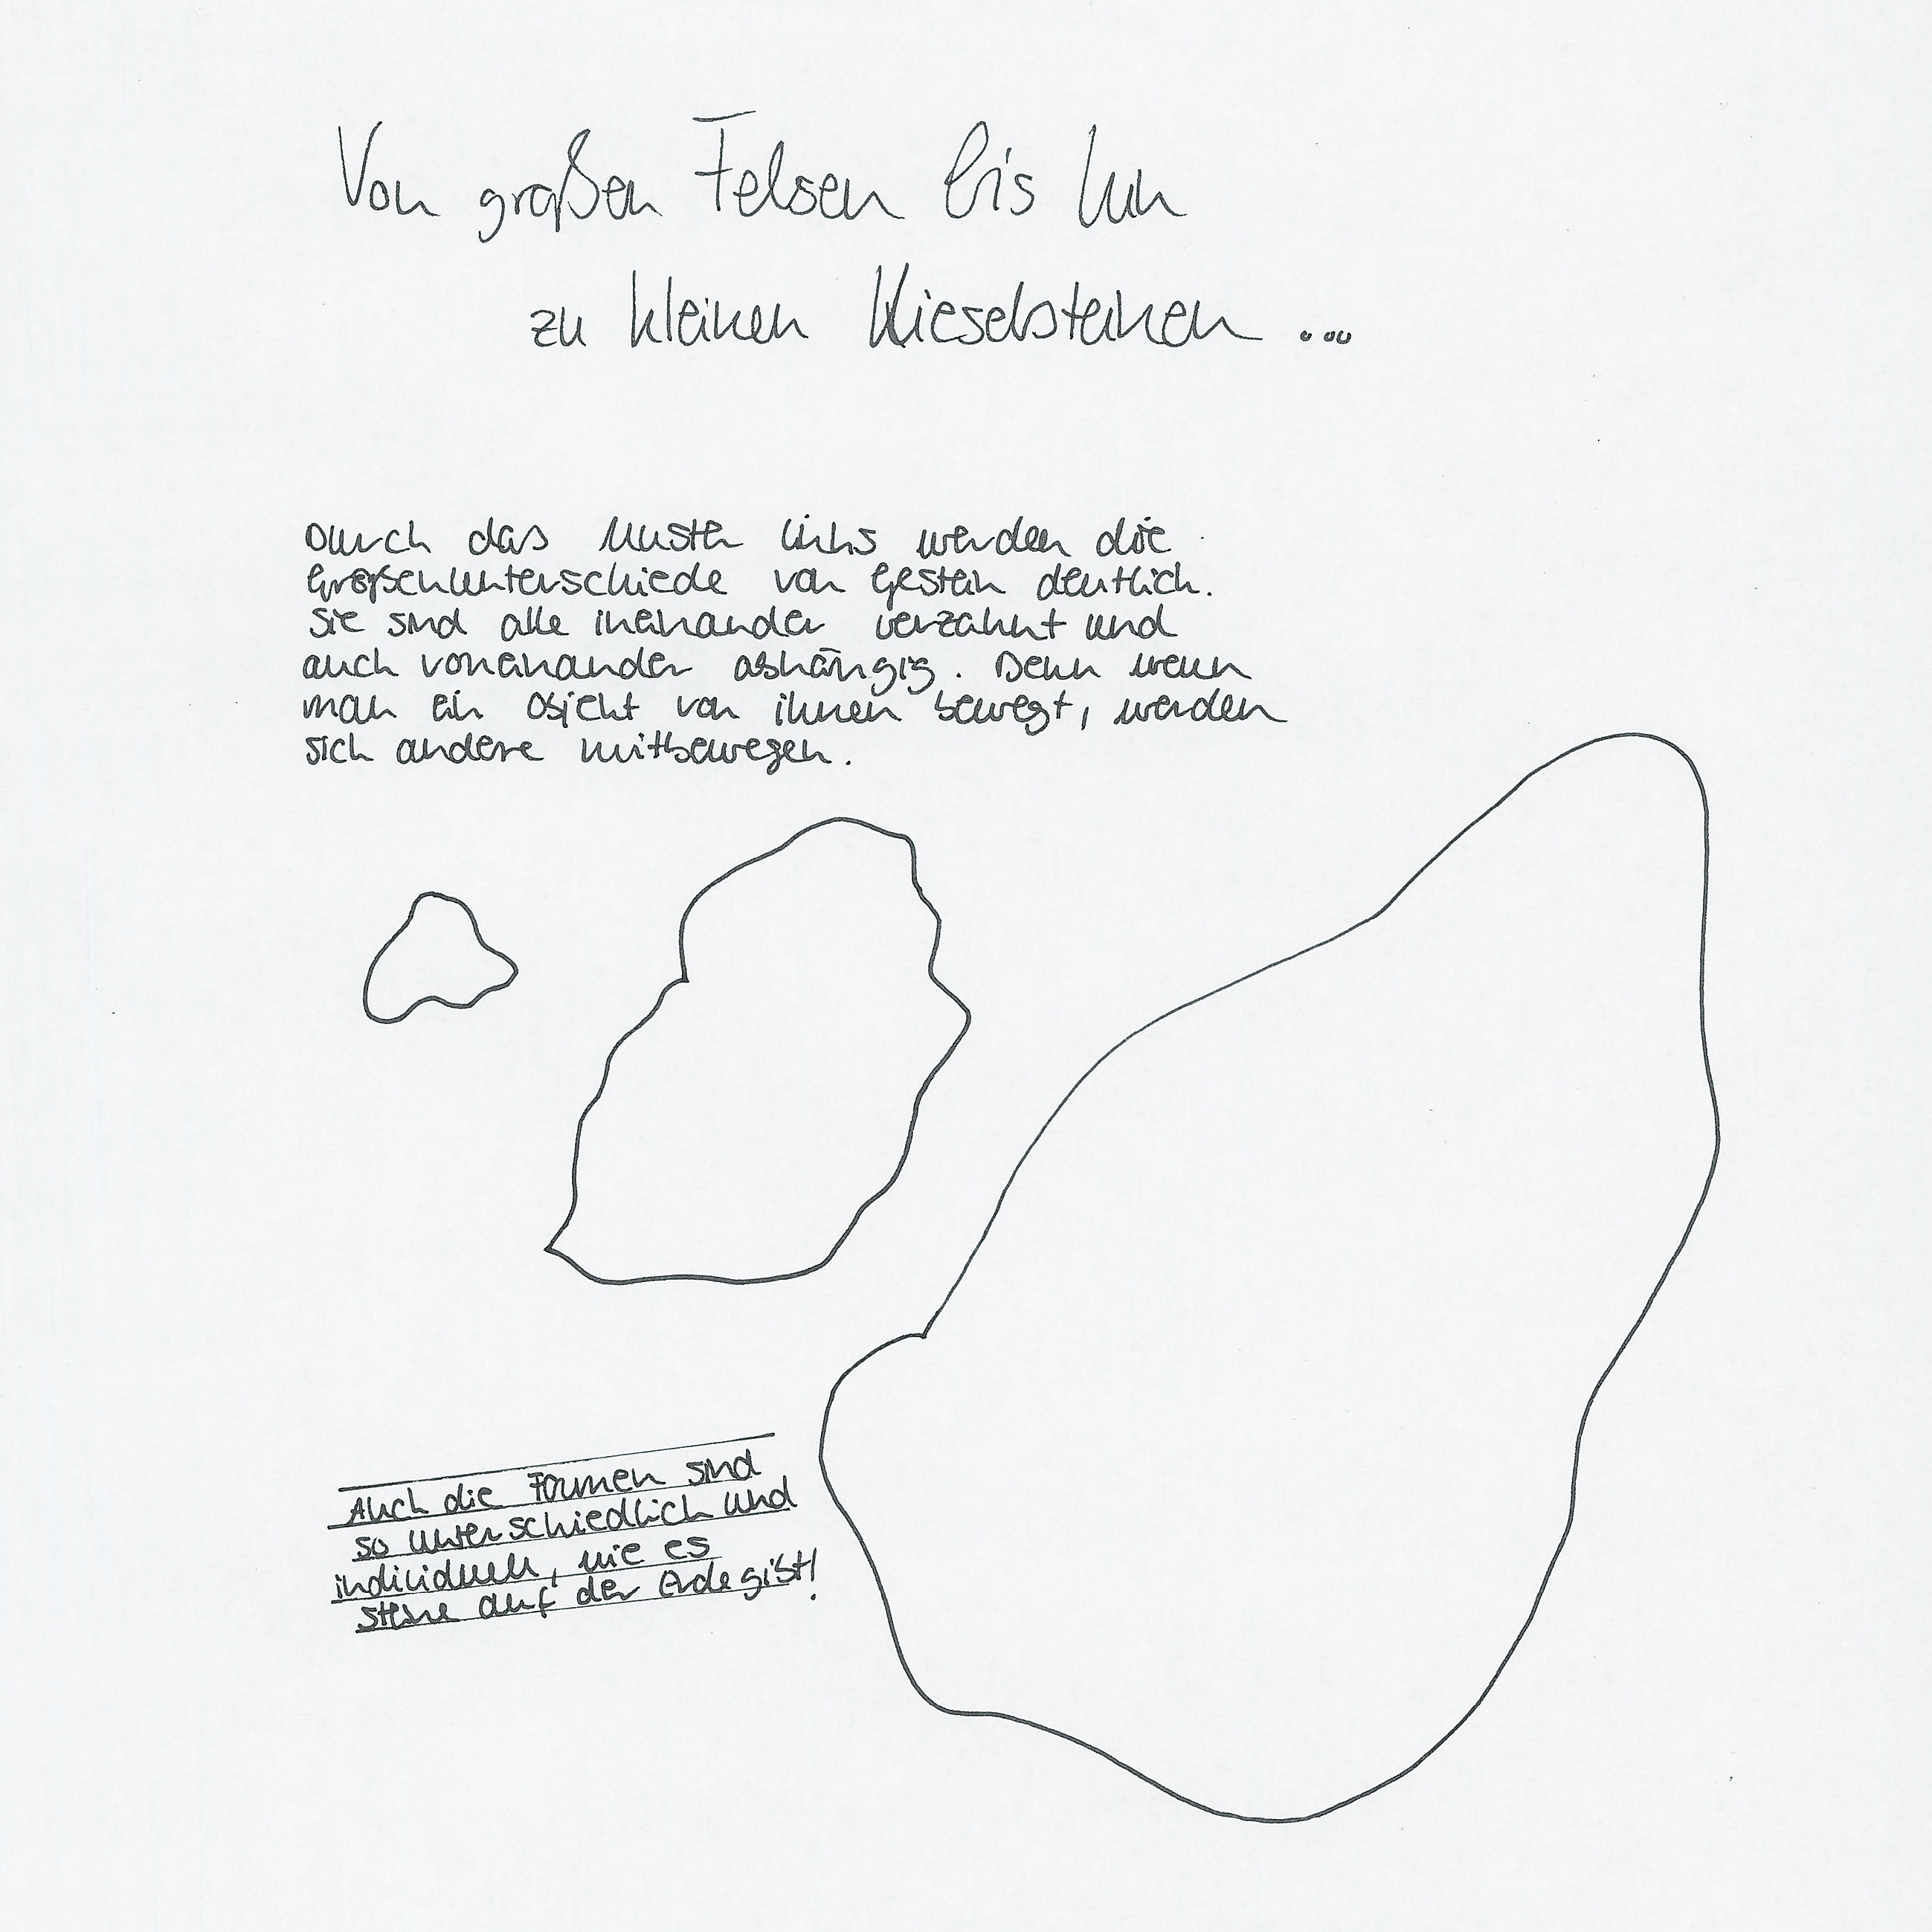 Von großen Felsen bis hin
zu kleinen Kieselsteinen ...
Durch das Muster links werden die
Größenunterschiede von Gestein deutlich.
Sie sind alle ineinander verzahnt und
auch voneinander abhängig. Denn wenn
man ein Objekt von ihnen bewegt, werden
sich andere mitbewegen.
Auch die Formen sind
so unterschiedlich und
individuell, wie es
Steine auf der Erde gibt!